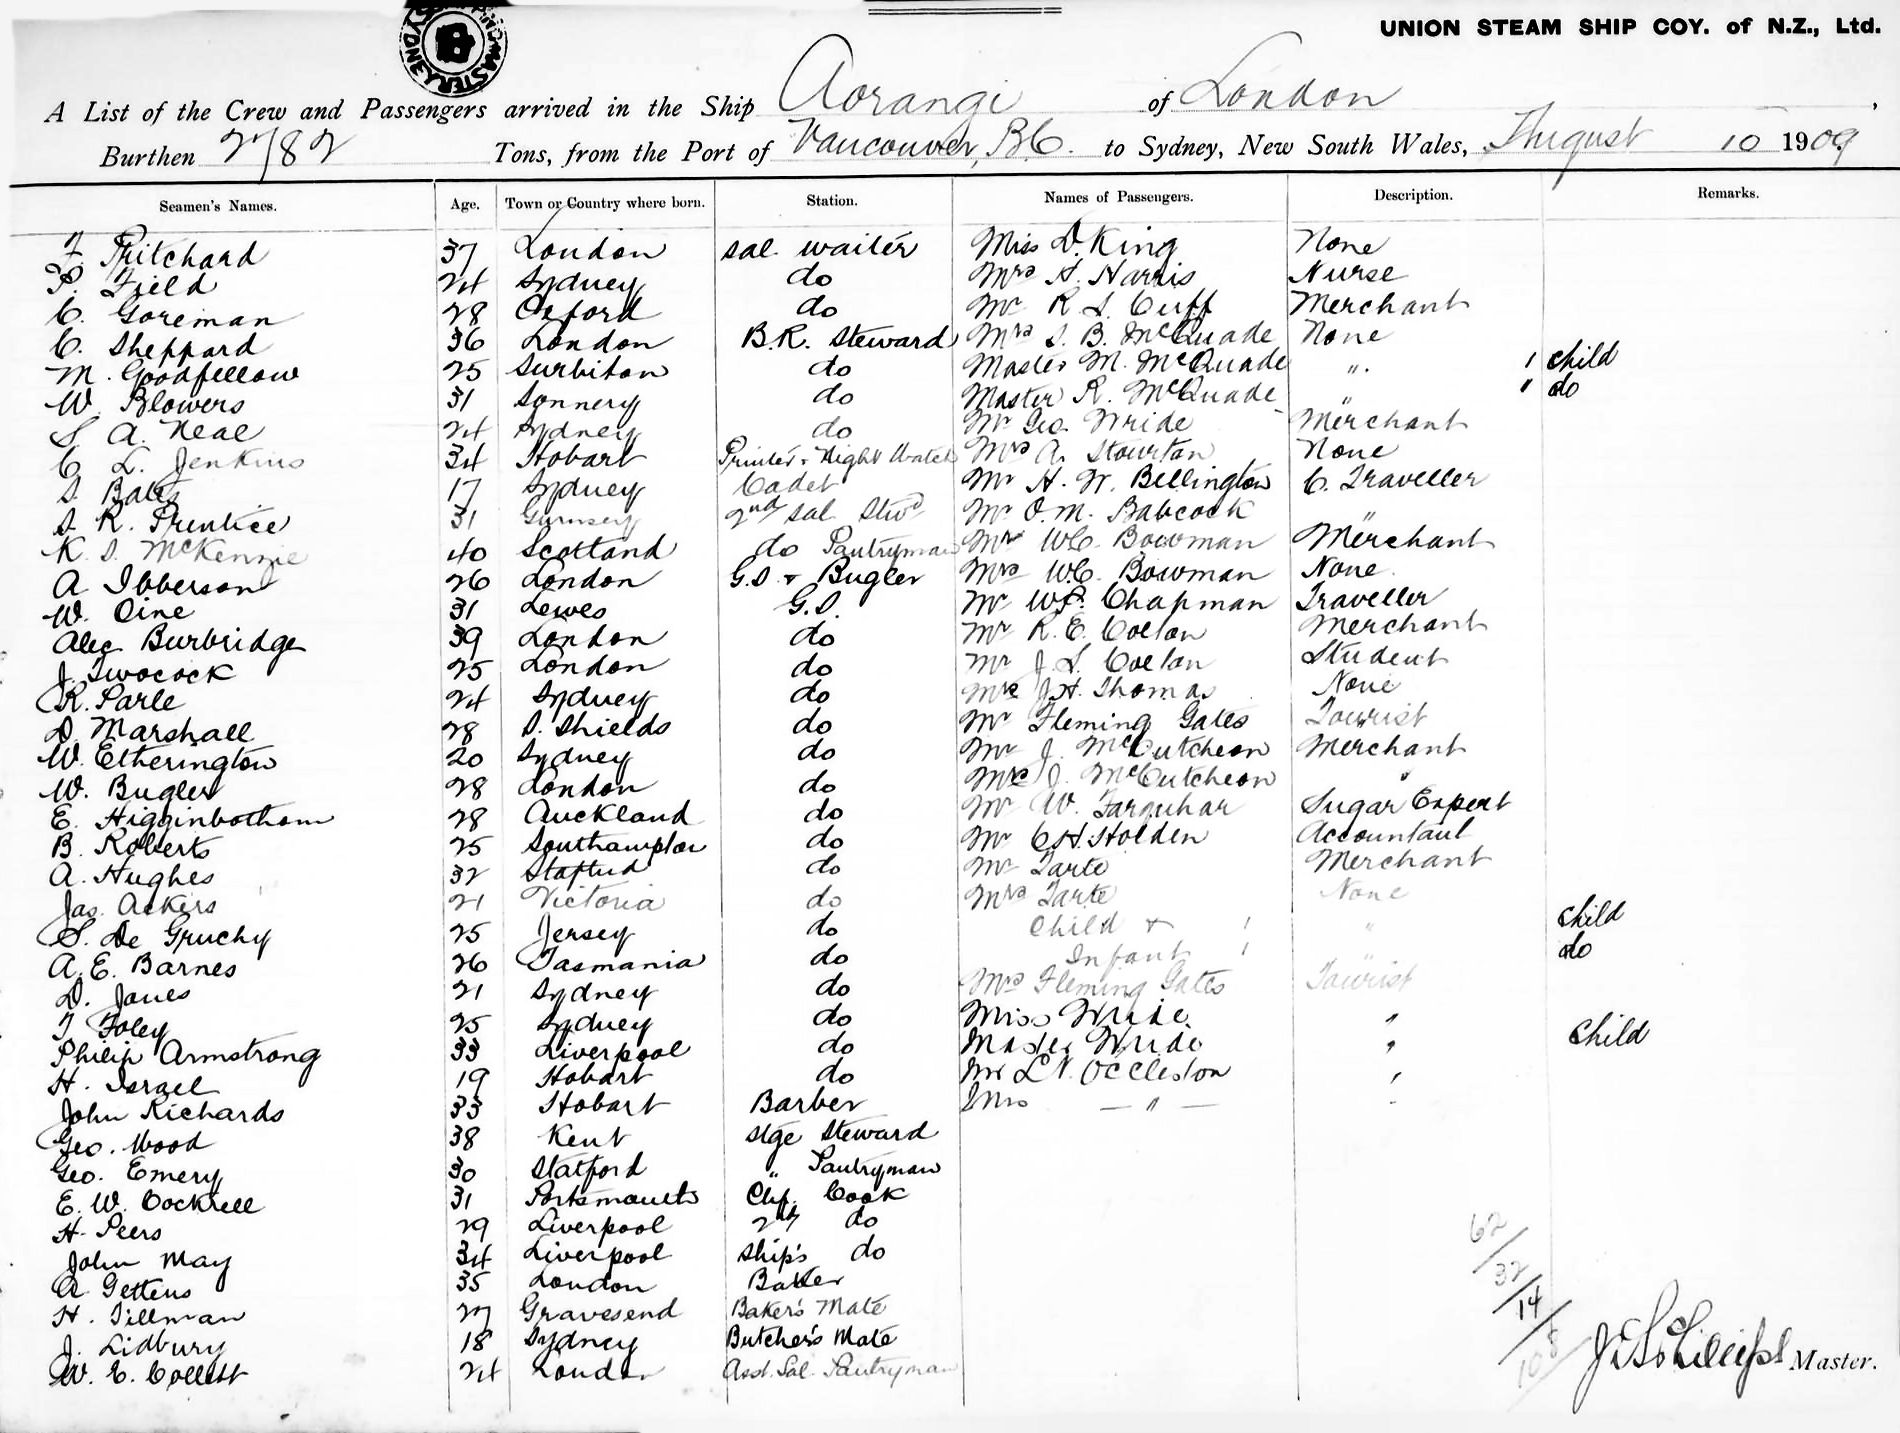 UNION STEAM SHIP COY. of N.Z., Ltd.
A List of the Crew and Passengers arrived in the Ship Aorangi of London,
Burthen 2782 Tons, from the Port of Vancouver, B.C. to Sydney, New South Wales, August 10 1909
Seamen's Names. Age. Town or Country where born. Station. Names of Passengers. Description. Remarks.
F. Pritchard 37 London Sal waiter Miss D. King None
P. Field 24 Sydney do Mrs H. Harris Nurse
C. Goreman 28 Oxford do Mr R. S. Cuff Merchant
C. Sheppard 36 London B.R. Steward Mrs S. B. McQuade None
M. Goodfellow 25 Surbiton do Master M. McQuade " 1 child
W. Blowers 31 Sonnery do Master R. McQuade " 1 do
S. A. Neal 24 Sydney do Mr Geo. Wride Merchant
C. L. Jenkins 34 Hobart Printer & Night Watch Mrs A. Stourton None
S. Bates 17 Sydney Cadet Mr H. W. Bellington C. Traveller
S. R. Prentice 31 Gurnsey 2nd Sal Stwd Mr O. M. Babcock "
K. S. McKennie 40 Scotland do Pantryman Mr W.C. Bowman Merchant
A Ibberson 26 London G.S. & Bugler Mrs W.C. Bowman None
W. Cine 31 Lewes G.S. Mr W.P. Chapman Traveller
Alec Burbridge 39 London do Mr R. E. Colton Merchant
J. Twocock 25 London do Mr J. S. Colton Student
R. Parle 24 Sydney do Mrs J.H. Thomas None
D. Marshall 28 S. Shields do Mr Fleming Gates Tourist
W. Etherington 20 Sydney do Mr J. McCutcheon Merchant
W. Bugler 28 London do Mrs J. McCutcheon "
E. Higginbotham 28 Auckland do Mr W. Farquhar Sugar Expert
B. Roberts 25 Southampton do Mr C.H. Holden Accountant
A. Hughes 32 do Mr Tarte Merchant
Jas. Ackers 21 Victoria do Mrs Tarte None
S. De Gruchy 25 Jersey do Child & 1 " child
A. E. Barnes 26 Tasmania do Infant 1 do
D. Jones 21 Sydney do Mrs Fleming Gates Tourist
T Foley 25 Sydney do Miss Wride "
Philip Armstrong 33 Liverpool do Master Wride " child
H. Israel 19 Hobart do Mr L.N. Occleston "
John Richards 33 Hobart Barber Mrs — " —
Geo. Wood 38 Kent Stge Steward
Geo. Emery 30 Statford " Pantryman
E. W. Cockrell 31 Portsmouth Chf. Cook
H. Peers 29 Liverpool 2nd do
John May 34 Liverpool Ship's do
A Gettens 35 London Baker
H. Tillman 27 Gravesend Baker's Mate
J. Lidbury 18 Sydney Butcher's Mate
W. E. Collett 24 London Asst. Sal. Pantryman
62/32/14/
Master.